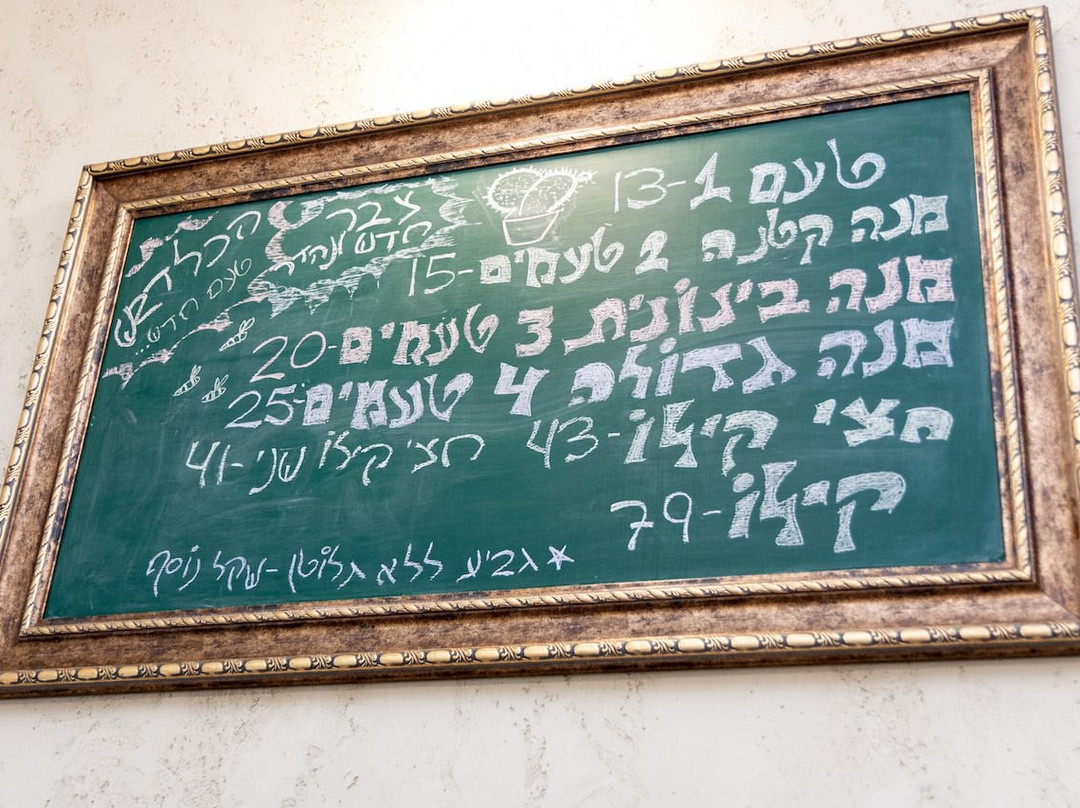 טעם 1-13
מנה קטנה 2 טעמים-15
מנה בינונית 3 טעמים-20
מנה גדולה 4 טעמים-25
חצי קילו-43 חצי קילו שני-41
קילו-79
☆גביע ללא גלוטן-שקל נוסף
צבר
חדש ונהדר
הכל דבש
טעם חדש